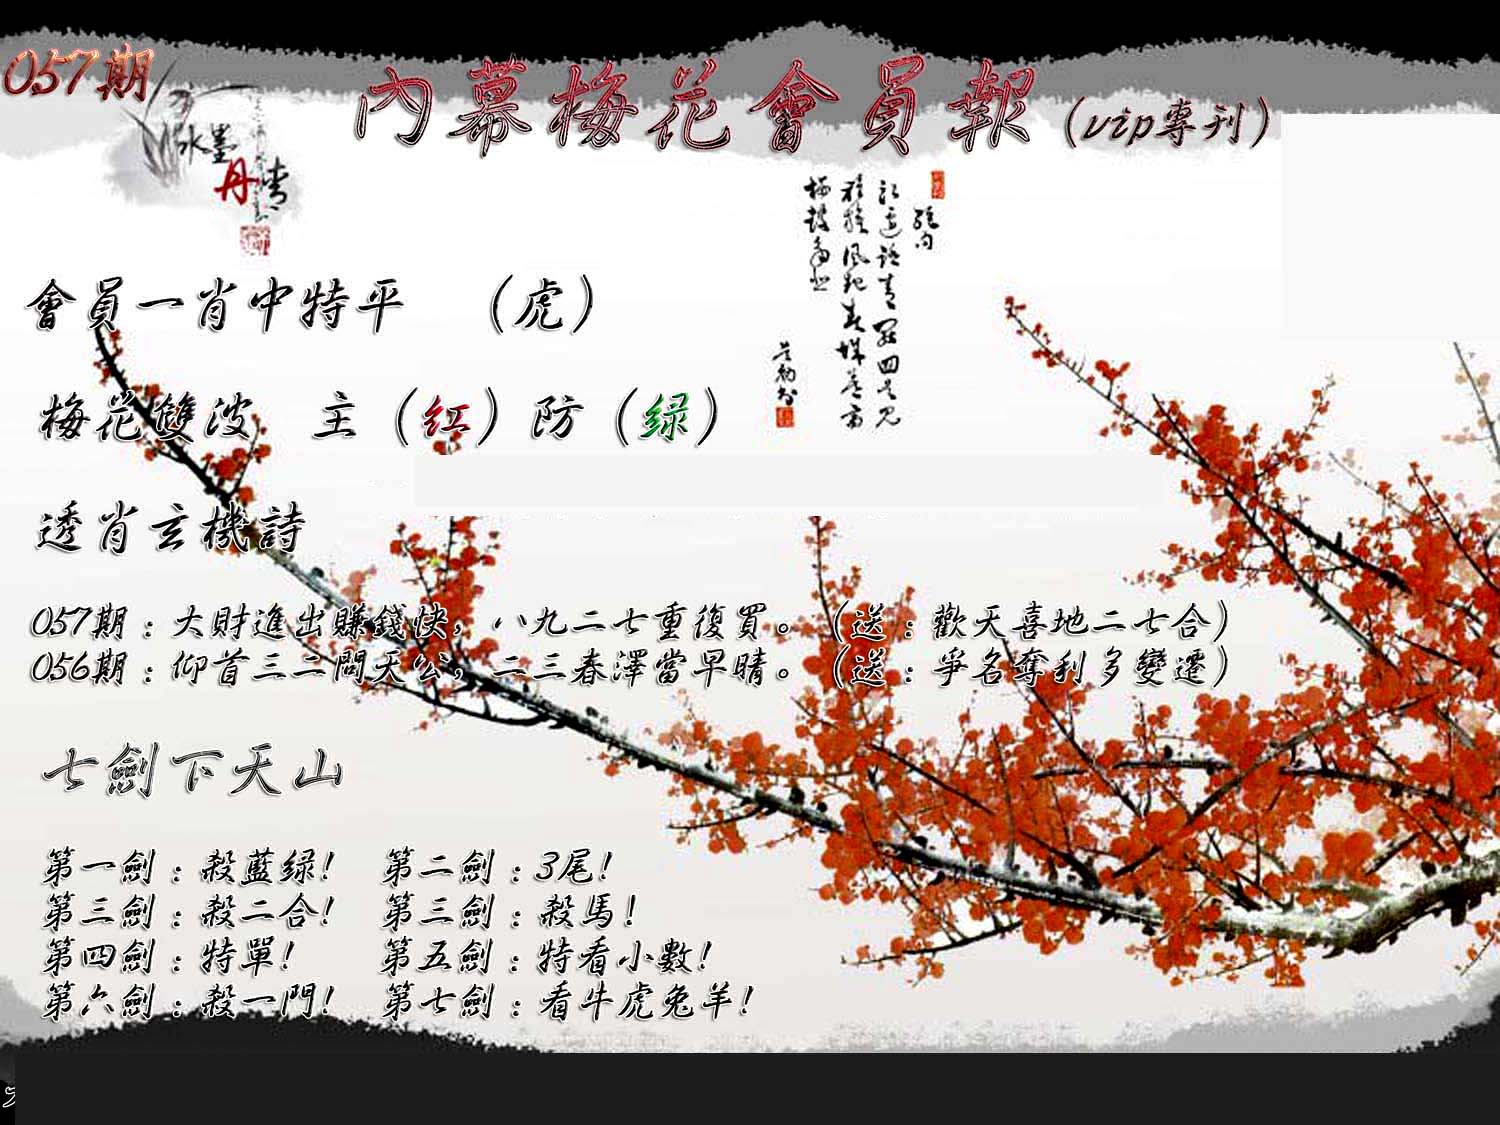 057期
內幕梅花會員報(vip專刊)
水墨
丹青
絕句
會員一肖中特平 (虎)
梅花雙波 主(红)防(绿)
透肖玄機詩
057期:大財進出賺錢快,八九二七重復買。(送:歡天喜地二七合)
056期:仰首三二問天公,二三春澤當早晴。(送:爭名奪利多變遷)
七劍下天山
第一劍:殺藍绿! 第二劍:3尾!
第三劍:殺二合! 第三劍:殺馬!
第四劍:特單! 第五劍:特看小數!
第六劍:殺一門! 第七劍:看牛虎兔羊!